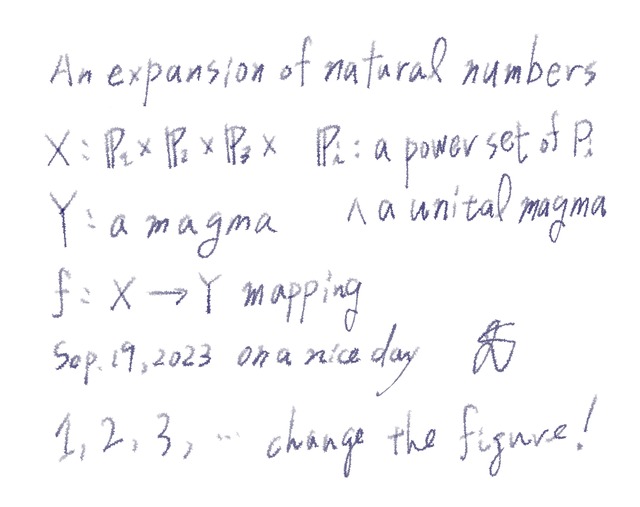 An expansion of natural numbers
X : ℙ₁ × ℙ₂ × ℙ₃ × ℙᵢ : a power set of Pᵢ
Y : a magma ∧ a unital magma
f : X → Y mapping
Sep. 19, 2023 on a nice day
1, 2, 3, … change the figure!